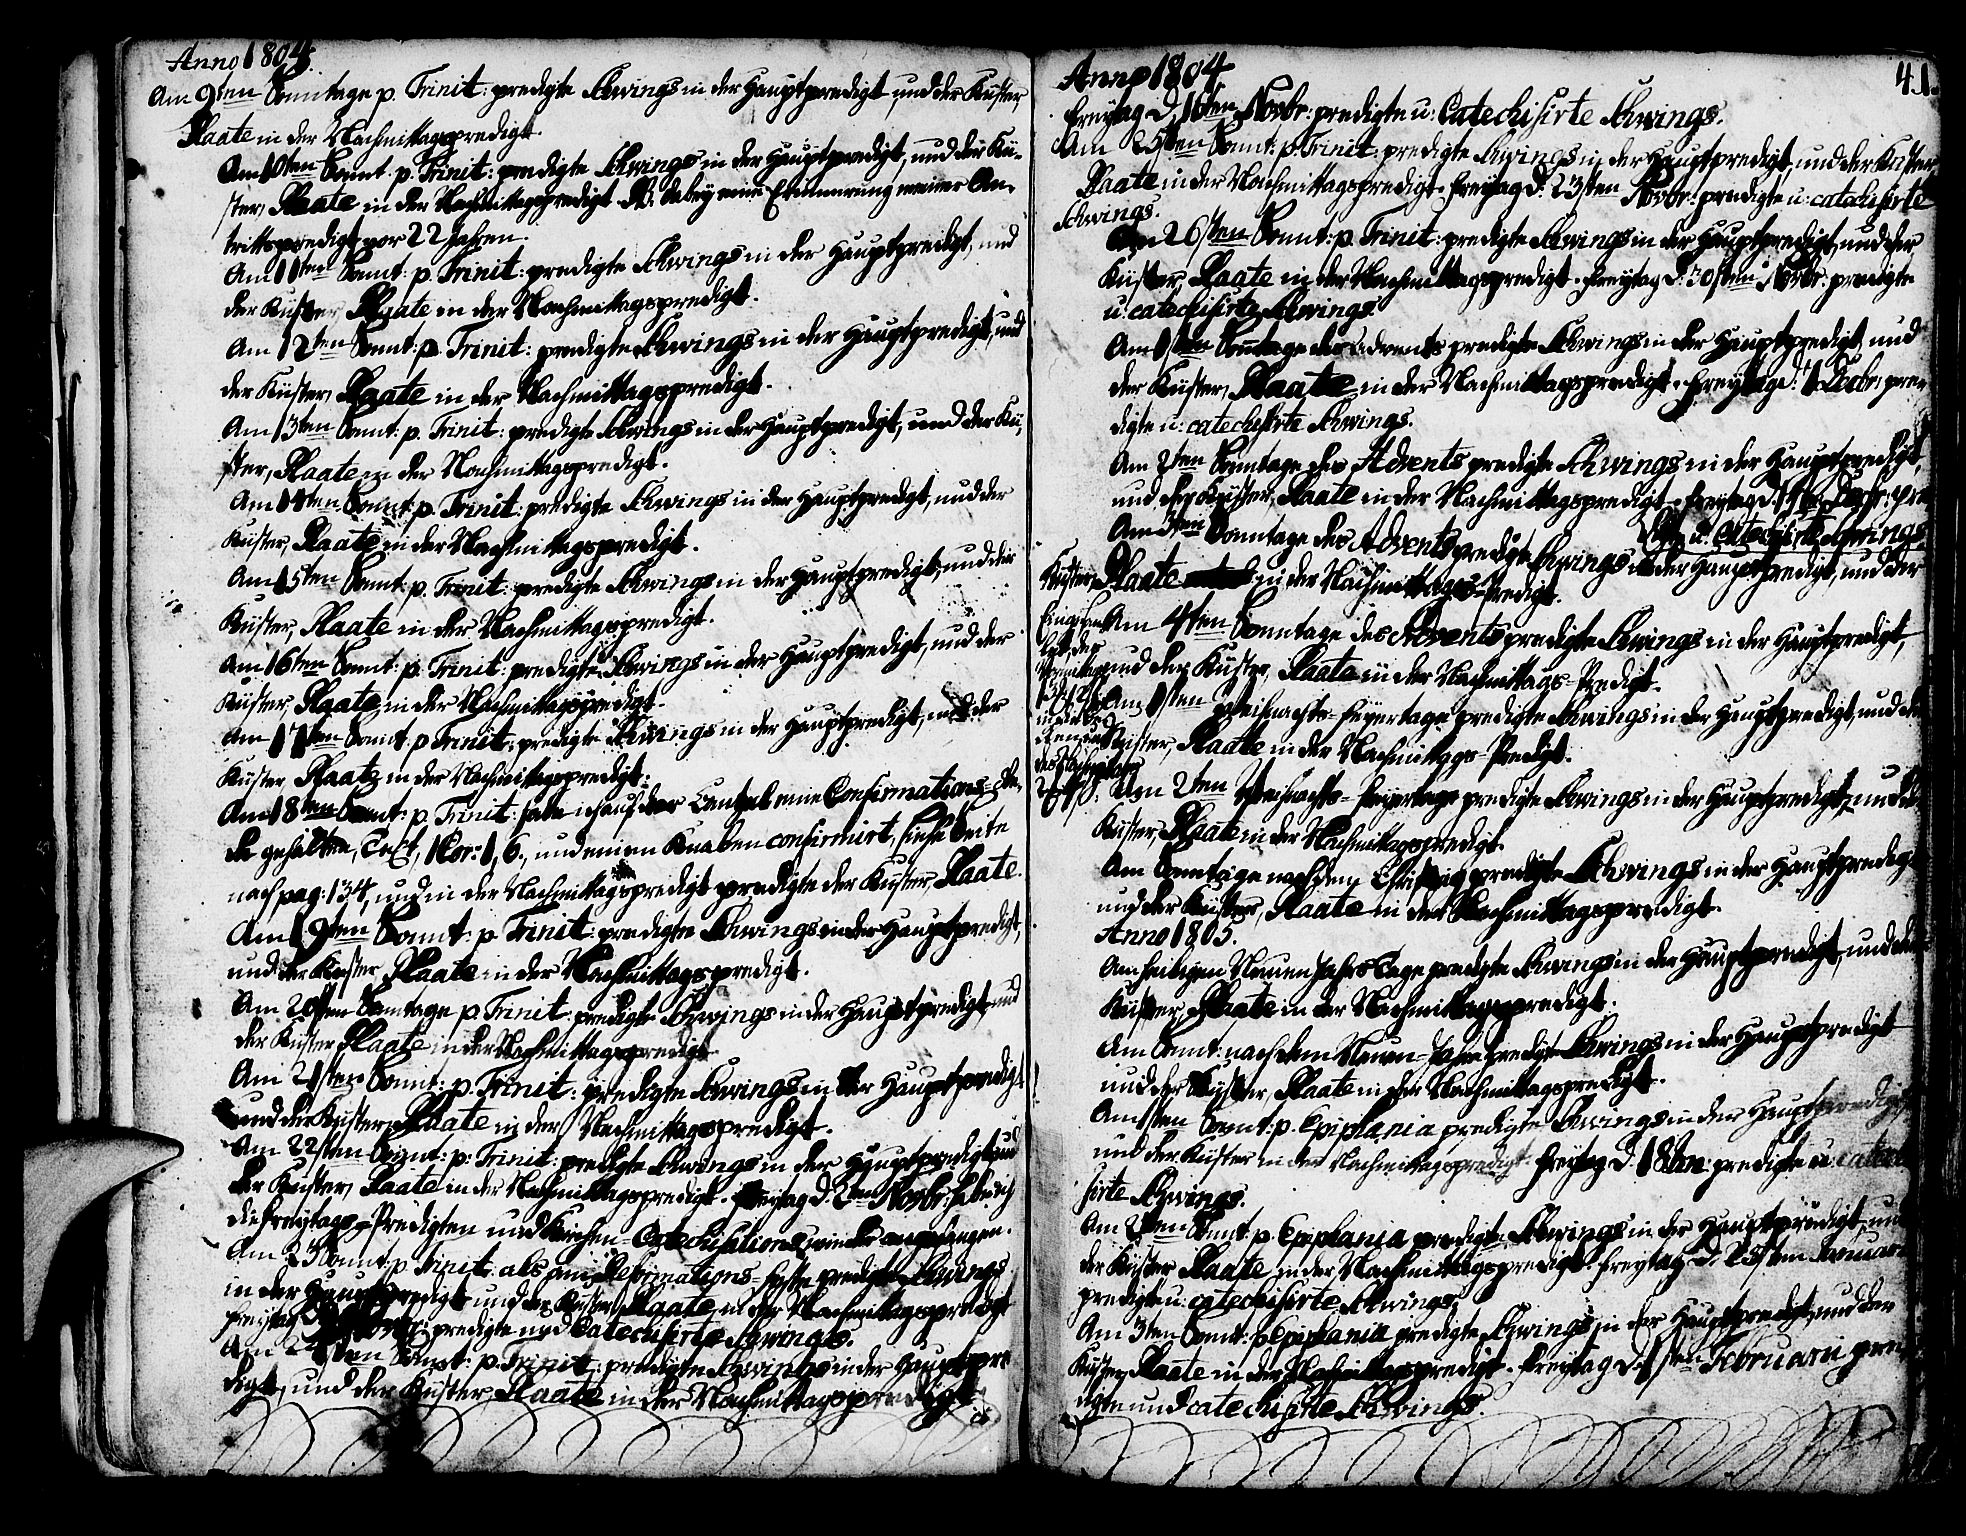 Anno 1804
Am 9ten Sonntage p. Trinit: predigte Schwings in der Hauptpredigt und der Küster,
Plaate in der Nachmittagspredigt.
Am 10ten Sonnt. p. Trinit: predigte Schwings in der Hauptpredigt, und der Kü-
ster, Plaate in der Nachmittagspredigt. NB. dabey eine Erinnerung meiner An-
trittspredigt vor 22 Jahren.
Am 11ten Sonnt. p. Trinit: predigte Schwings in der Hauptpredigt, und
der Küster Plaate in der Nachmittagspredigt.
Am 12ten Sonnt: p. Trinit: predigte Schwings in der Hauptpredigt, und
der Küster, Plaate in der Nachmittagspredigt.
Am 13ten Sonnt: p. Trinit: predigte Schwings in der Hauptpredigt, und der Kü-
ster, Plaate in der Nachmittagspredigt.
Am 14ten Sonnt: p. Trinit: predigte Schwings in der Hauptpredigt, und der
Küster, Plaate in der Nachmittagspredigt.
Am 15ten Sonnt: p. Trinit: predigte Schwings in der Hauptpredigt, und der
Küster, Plaate in der Nachmittagspredigt.
Am 16ten Sonnt: p. Trinit: predigte Schwings in der Hauptpredigt, und der
Küster, Plaate in der Nachmittagspredigt.
Am 17ten Sonnt: p. Trinit: predigte Schwings in der Hauptpredigt, und der
Küster, Plaate in der Nachmittagspredigt.
Am 18ten Sonnt: p. Trinit: habe ich auf der Cantzel eine Confirmations-Re-
de gehalten, Text, 1 Cor: 1, 6., und einen Knaben confirmirt, siehe Seite
nach pag: 134, und in der Nachmittagspredigt predigte der Küster, Plaate.
Am 19ten Sonnt: p. Trinit: predigte Schwings in der Hauptpredigt,
und der Küster, Plaate in der Nachmittagspredigt.
Am 20sten Sonntage p. Trinit: predigte Schwings in der Hauptpredigt, und
der Küster Plaate in der Nachmittagspredigt.
Am 21sten Sonnt: p. Trinit: predigte Schwings in der Hauptpredigt
und der Küster, Plaate in der Nachmittagspredigt.
Am 22sten Sonnt: p: Trinit: predigte Schwings in der Hauptpredigt und
der Küster, Plaate in der Nachmittagspredigt. Freytag d. 2ten Novbr: habe ich
die Freytags-Predigten und Kirchen-Catechisations wieder angefangen.
Am 23 Sonnt: p. Trinit: als am Reformations-Feste predigte Schwings
in der Hauptpredigt und der Küster, Plaate in der Nachmittagspredigt
Freytag Novbr: predigte und Catechisirte Schwings.
Am 24sten Sonnt: p. Trinit: predigte Schwings in der Hauptpre-
digt, und der Küster, Plaate in der Nachmittagspredigt.
Anno 1804
41.
Freytag d. 16ten Novbr: predigte u: Catechisirte Schwings.
Am 25sten Sonnt: p. Trinit: predigte Schwings in der Hauptpredigt, und der Küster,
Plaate in der Nachmittagspredigt. Freytag d. 23sten Novbr: predigte u: catechisirte
Schwings.
Am 26sten Sonnt: p. Trinit: predigte Schwings in der Hauptpredigt, und der
Küster, Plaate in der Nachmittagspredigt. Freytag d: 30sten Novbr: predigte
u: catechisirte Schwings.
Am 1sten Sonntage des Advents predigte Schwings in der Hauptpredigt, und
der Küster, Plaate in der Nachmittagspredigt. Freytag d: Decbr: pre-
digte u: catechisirte Schwings.
Am 2ten Sonntage des Advents predigte Schwings in der Hauptpredigt,
und der Küster, Plaate in der Nachmittagspredigt. Freytag d. Decbr: pre-
digte u. Catechisirte Schwings.
Am 3ten Sonntage des Advents predigte Schwings in der Hauptpredigt, und der
Küster, Plaate in der Nachmittags-Predigt.
Am 4ten Sonntage des Advents predigte Schwings in der Hauptpredigt,
und der Küster, Plaate in der Nachmittags-Predigt.
Am 1sten Weihnachts-Feyertage predigte Schwings in der Hauptpredigt, und der
Küster, Plaate in der Nachmittags-Predigt.
Am 2ten Weihnachts-Feyertage predigte Schwings in der Hauptpredigt, und der
Küster, Plaate in der Nachmittagspredigt.
Am Sonntage nach dem Christtag predigte Schwings in der Hauptpredigt
und der Küster, Plaate in der Nachmittagspredigt.
Anno 1805.
Am heiligen Neuen Jahrs Tage predigte Schwings in der Hauptpredigt, und der
Küster, Plaate in der Nachmittagspredigt.
Am Sonnt: nach dem Neuen-Jahre predigte Schwings in der Hauptpredigt
und der Küster, Plaate in der Nachmittagspredigt.
Am 1sten Sonnt: p. Epiphania predigte Schwings in der Hauptpredigt
und der Küster in der Nachmittagspredigt. Freytag d. 18 Jan: predigte u: catechi-
sirte Schwings.
Am 2ten Sonnt p. Epiphania predigte Schwings in der Hauptpredigt, und
der Küster Plaate in der Nachmittagspredigt. Freytag d. 25sten Januarii
predigte u: catechisirte Schwings.
Am 3ten Sonnt: p. Epiphania predigte Schwings in der Hauptpredigt, und der
Küster, Plaate in der Nachmittagspredigt. Freytag d. 1sten Februarii pre-
digte und catechisirte Schwings.